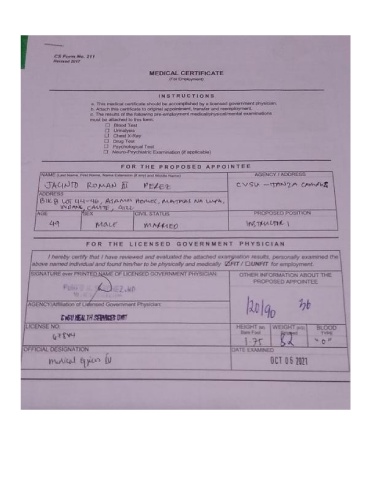 CS Form No. 211
Revised 2017
MEDICAL CERTIFICATE
(For Employment)
INSTRUCTIONS
a. This medical certificate should be accomplished by a licensed government physician.
b. Attach this certificate to original appointment, transfer and reemployment.
c. The results of the following pre-employment medical/physical/mental examinations
must be attached to this form:
☐ Blood Test
☐ Urinalysis
☐ Chest X-Ray
☐ Drug Test
☐ Psychological Test
☐ Neuro-Psychiatric Examination (if applicable)
FOR THE PROPOSED APPOINTEE
NAME (Last Name, First Name, Name Extension (if any) and Middle Name) AGENCY / ADDRESS
JACINTO ROMAN III PEREZ CVSU - TANZA CAMPUS
ADDRESS
AGE SEX CIVIL STATUS PROPOSED POSITION
49 MALE MARRIED INSTRUCTOR I
FOR THE LICENSED GOVERNMENT PHYSICIAN
I hereby certify that I have reviewed and evaluated the attached examination results, personally examined the
above named individual and found him/her to be physically and medically ☑FIT / ☐UNFIT for employment.
SIGNATURE over PRINTED NAME OF LICENSED GOVERNMENT PHYSICIAN: OTHER INFORMATION ABOUT THE
PROPOSED APPOINTEE
120/90 36
AGENCY/Affiliation of Licensed Government Physician:
LICENSE NO. HEIGHT WEIGHT BLOOD
TYPE
1.75 82 "O"
OFFICIAL DESIGNATION DATE EXAMINED
OCT 05 2021